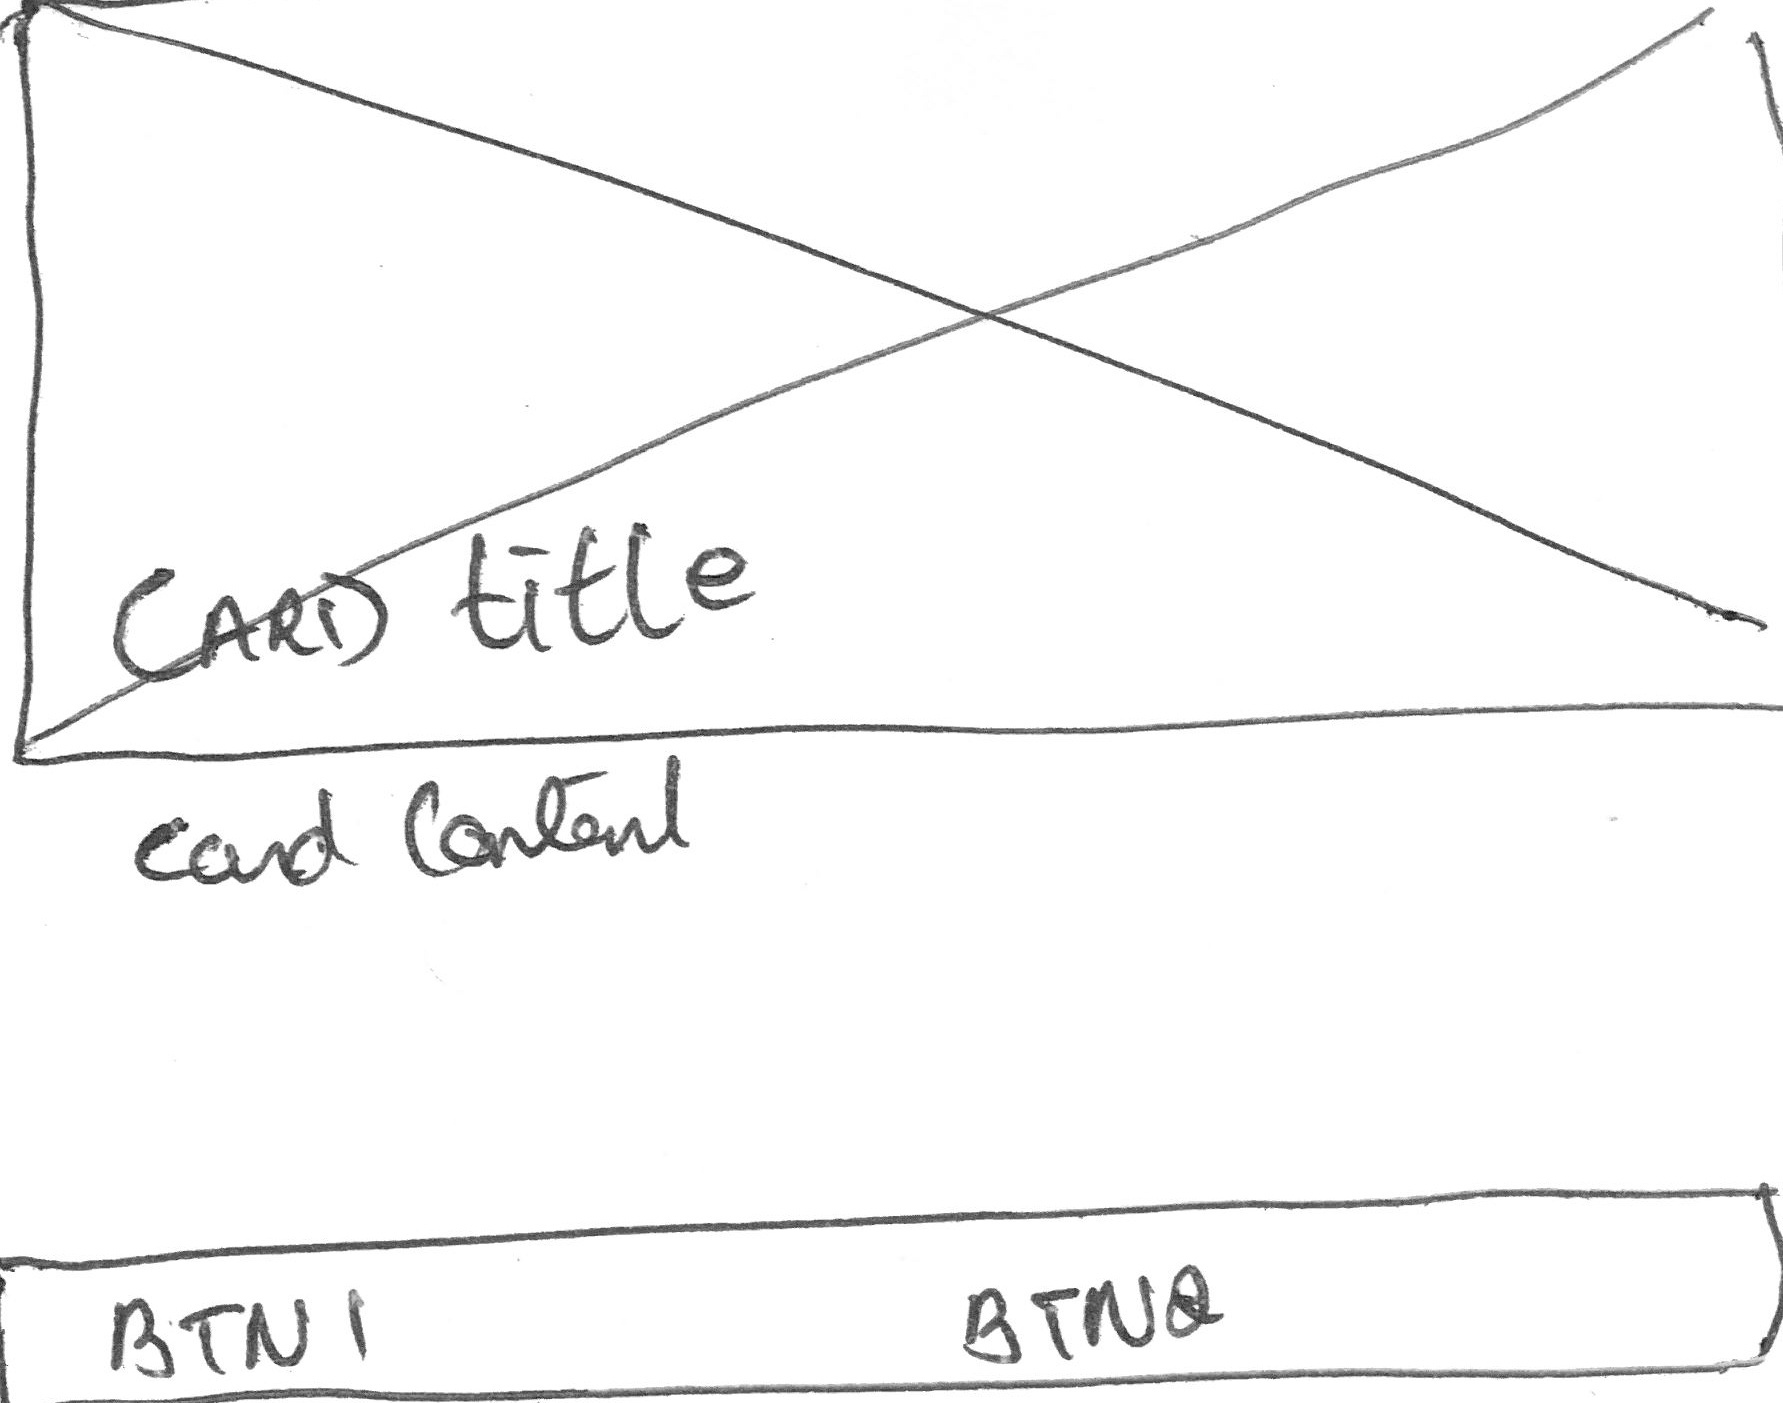 CARD title
card Content
BTN1 BTN2